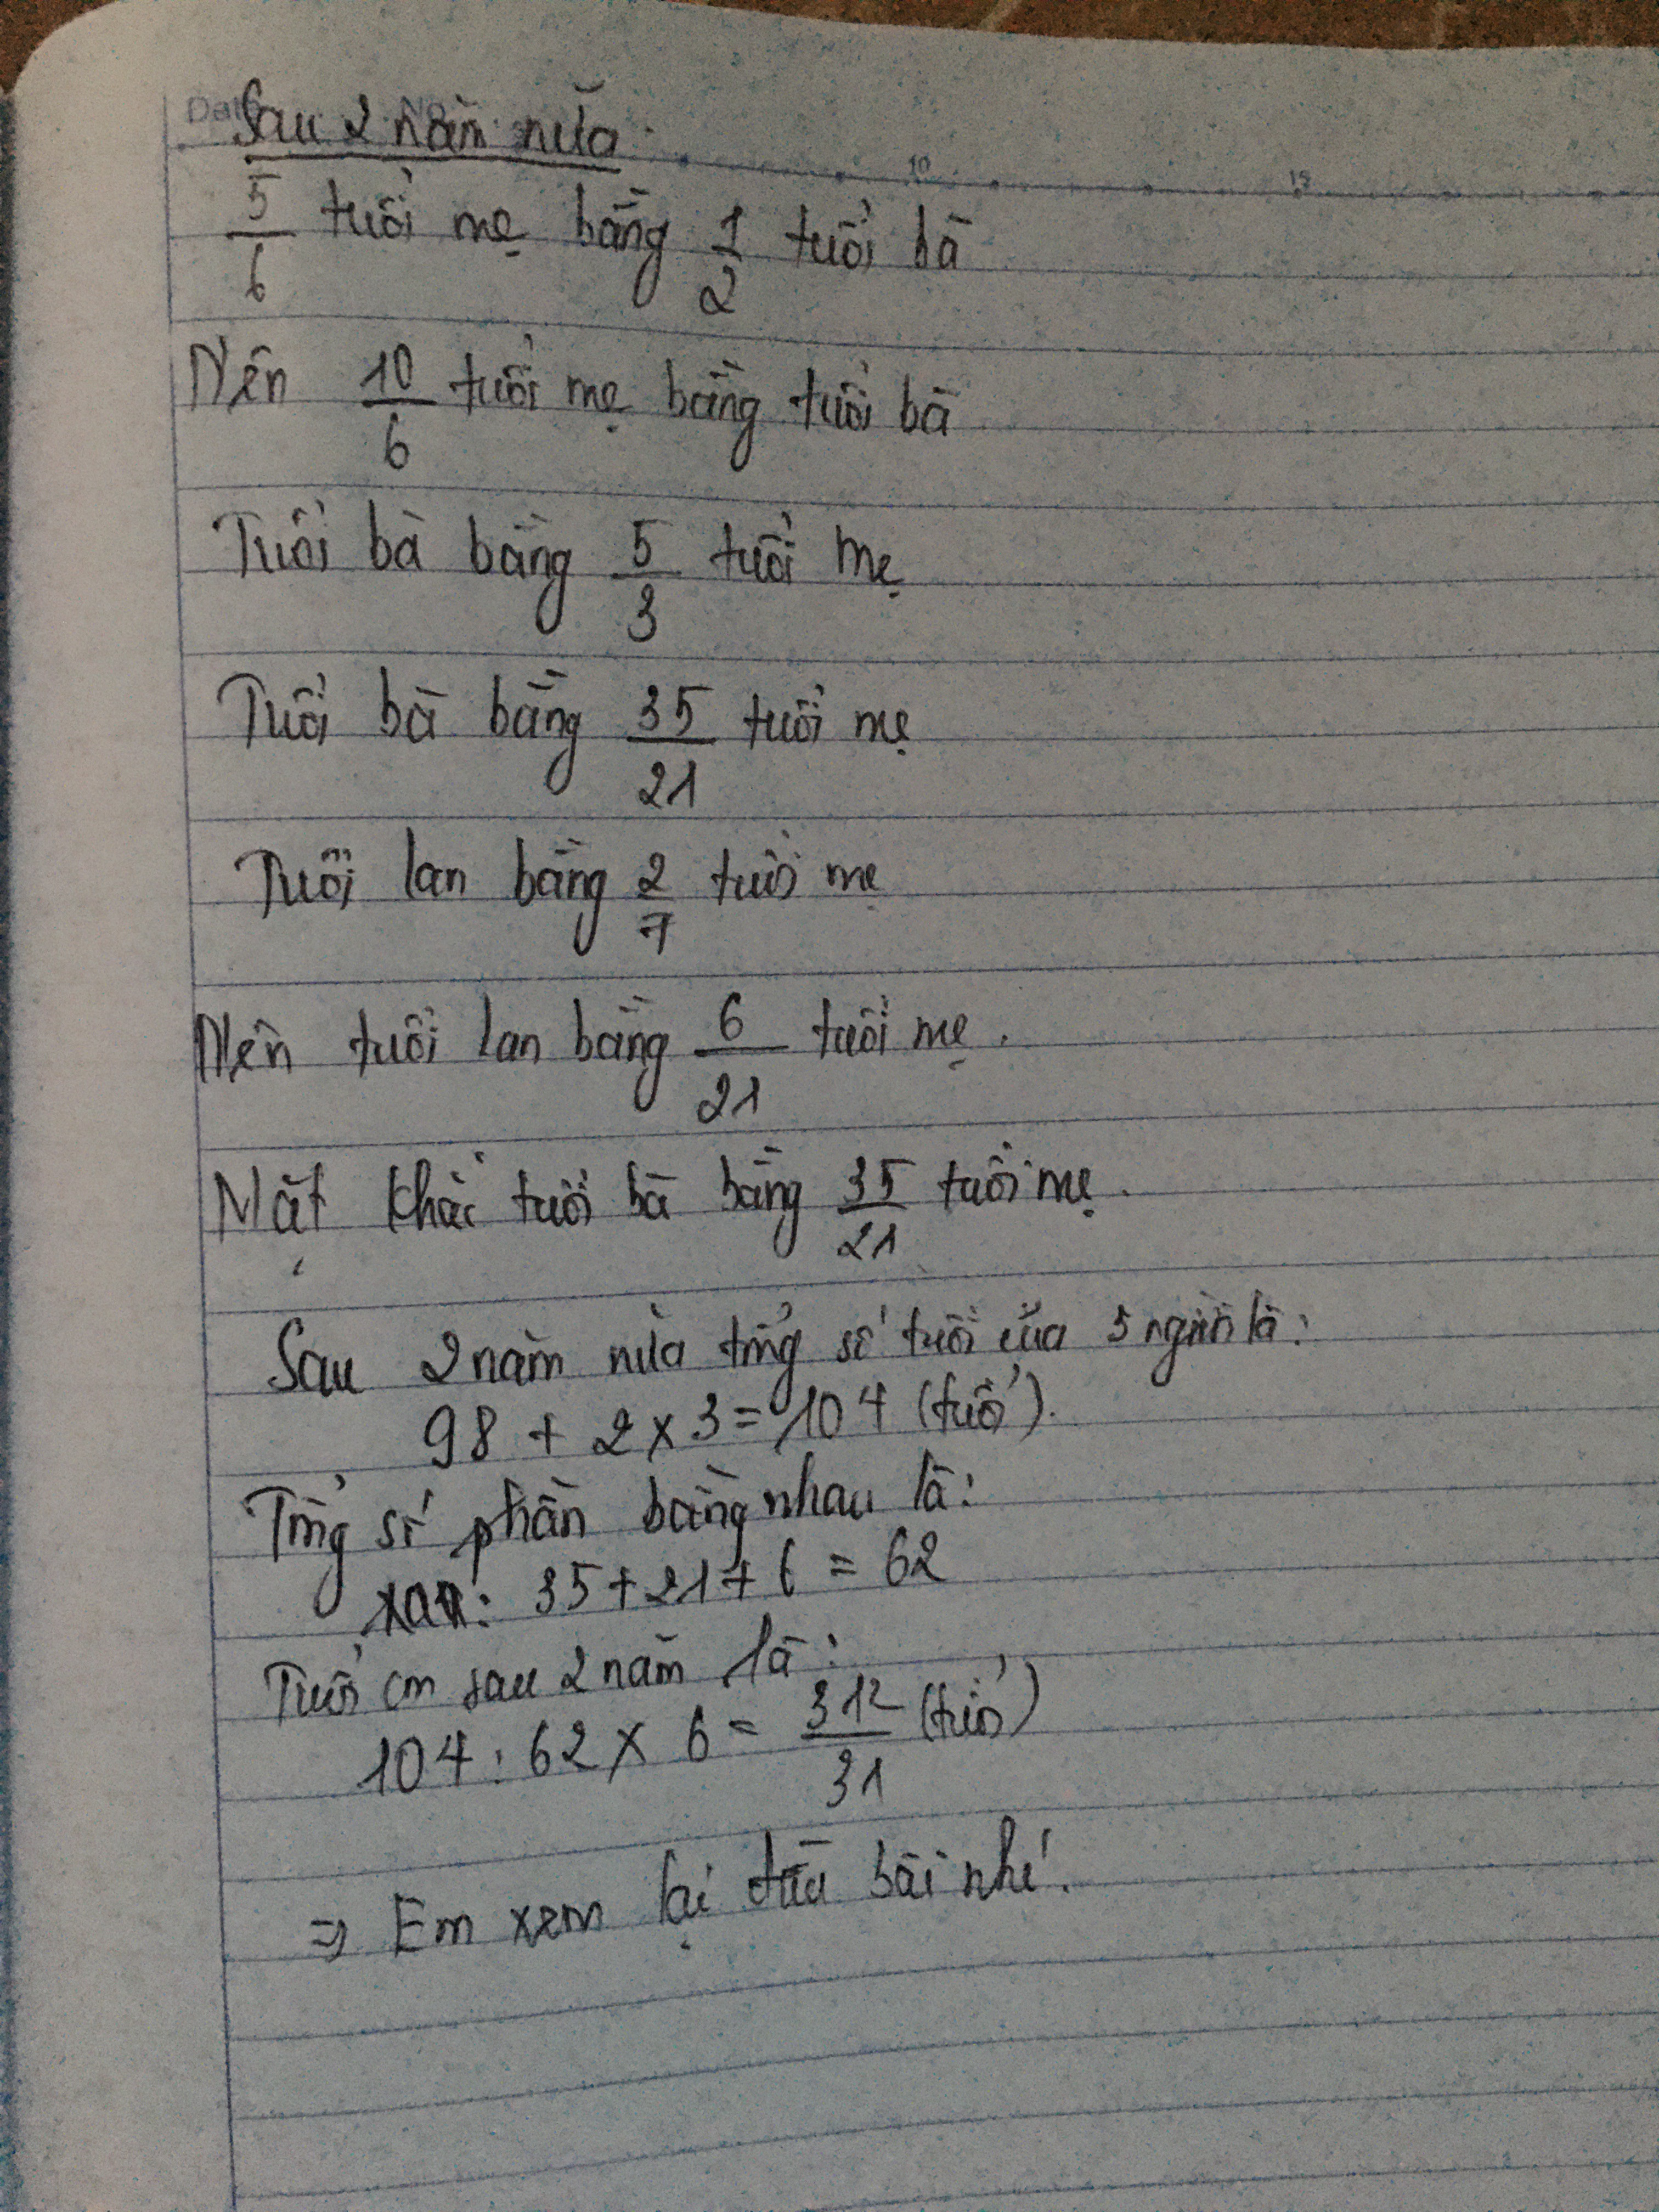 Sau 2 năm nữa
5/6 tuổi mẹ bằng 1/2 tuổi bà
Nên 10/6 tuổi mẹ bằng tuổi bà
Tuổi bà bằng 5/3 tuổi mẹ
Tuổi bà bằng 35/21 tuổi mẹ
Tuổi lan bằng 2/7 tuổi mẹ
Nên tuổi lan bằng 6/21 tuổi mẹ.
Mặt khác tuổi bà bằng 35/21 tuổi mẹ.
Sau 2 năm nữa tổng số tuổi của 3 người là:
98 + 2 x 3 = 104 (tuổi).
Tổng số phần bằng nhau là:
35 + 21 + 6 = 62
Tuổi con sau 2 năm là:
104 : 62 x 6 = 312/31 (tuổi)
=> Em xem lại đầu bài nhé.